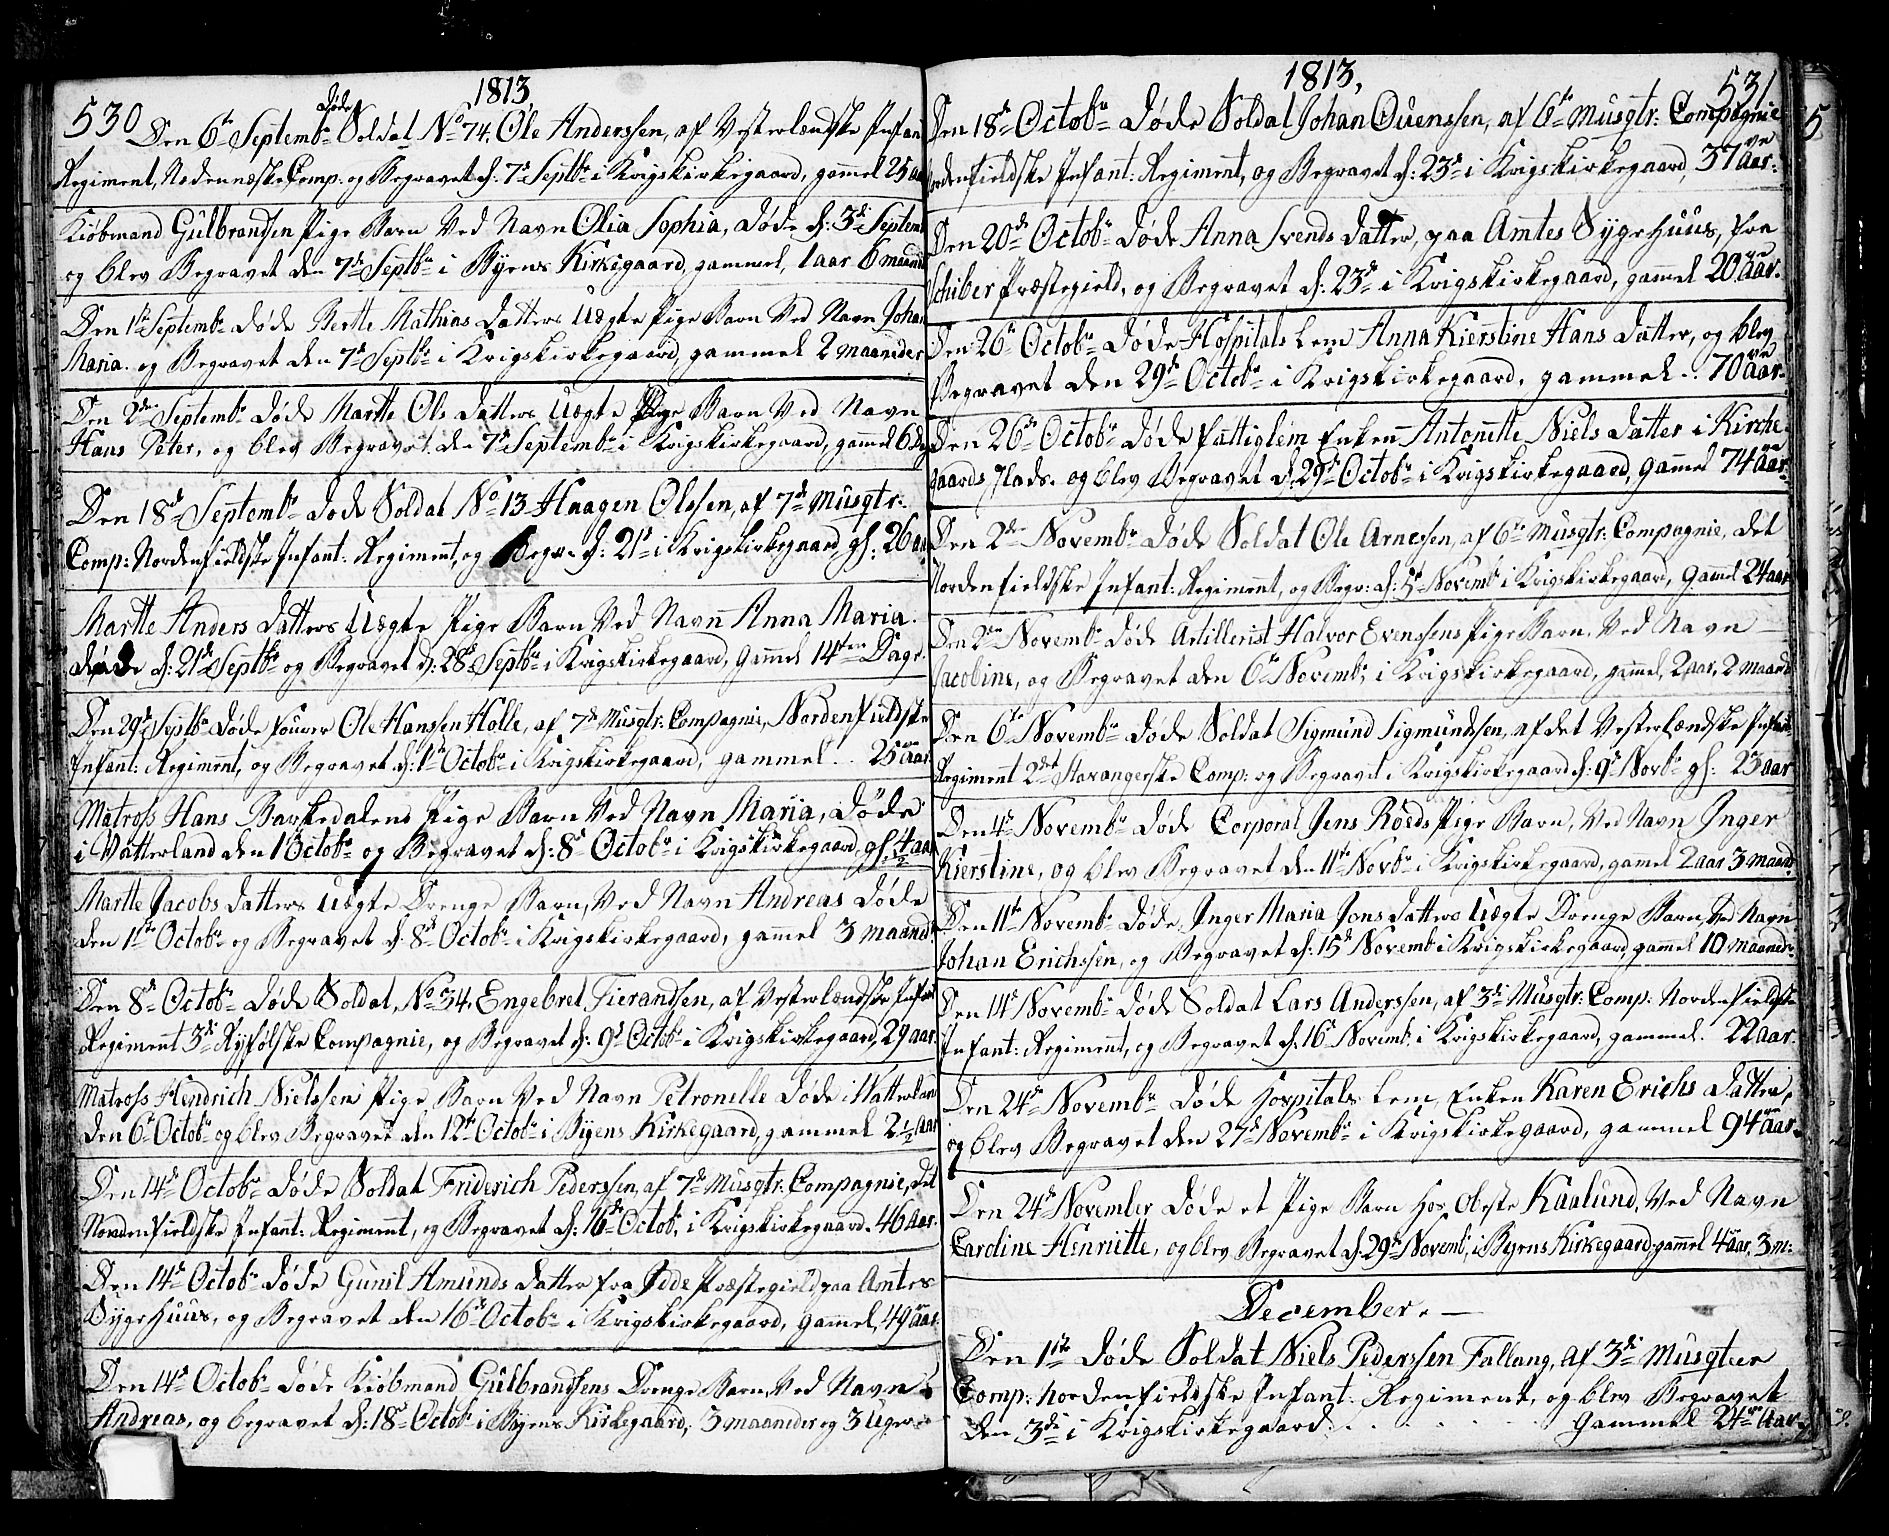 1813
530 Den 6te Septembr døde Soldat No 74. Ole Anderssen, af Vesterlændske Infant
Regiment, Nedennæske Comp. og Begravet d: 7de Septbr i Krigskirkegaard, gammel 25 aar
Kiøbmand Gulbransen Pige Barn Ved Navn Olia Sophia, døde d: 3de Septemb
og blev Begravet den 7de Septbr i Byens Kirkegaard, gammel, 1 aar 6 maaned
Den 1te Septembr døde Berthe Mathias datters Uægte Pige Barn Ved Navn Joha
Maria. og Begravet den 7de Septbr i Krigskirkegaard, gammel 2 maaneder
Den 2den Septembr døde Marthe Ols datters Uægte Pige Barn Ved Navn
Hans Peter, og blev Begravet den 7de Septembr i Krigskirkegaard, gammel 6 dag
Den 18de Septembr døde Soldat No 13 Haagen Olssen, af 7de Musqtr:
Comp: Nordenfieldske Infant: Regiment, og Begr. d: 21de i Krigskirkegaard, gl: 26 aar
Marthe Anders datters Uægte Pige Barn Ved Navn Anna Maria.
døde d: 21de Septbr og Begravet d: 28de Septbr i Krigskirkegaard, Gammel 14ten Dage.
Den 29de Septbr døde fourer Ole Hanssen Holle, af 7de Musqtr: Compagnie, Nordenfieldske
Infant: Regiment, og Begravet d: 1te Octobr i Krigskirkegaard, gammel .. 25 aar.
Matross Hans Barkedalens Pige Barn Ved Navn Maria, døde
i Vatterland den 1 Octobr og Begravet d: 8de Octobr i Krigskirkegaard, gl: 4 1/2 aar
Marthe Jacobs datters Uægte Drenge Barn, Ved Navn Andreas døde
den 1te Octobr og Begravet d: 8de Octobr i Krigskirkegaard, gammel 3 maand:
Den 8de Octobr døde Soldat, No 34, Engebret Tierandsen, af Vesterlændske Infant
Regiment 3de Ryfølske Compagnie, og Begravet d: 9de Octobr i Krigskirkegaard, 29 aar.
Matross Hendrich Nielssen Pige Barn Ved Navn Petronelle døde i Vatterland
den 6te Octobr og blev Begravet den 12te Octobr i Byens Kirkegaard, gammel 2 1/2 Aar
Den 14de Octobr døde Soldat Friderich Pederssen, af 7de Musqtr: Compagnie, det
Nordenfieldske Infant: Regiment, og Begravet d: 16de Octob, i Krigskirkegaard. 46 Aar.
Den 14de Octobr døde Gunil Amunds datter fra Idde Præstegield paa Amtes
Sygehuus, og Begravet den 16de Octobr i Krigskirkegaard, Gammel, 49 aar.
Den 14de Octobr døde Kiøbmand Gulbrandsens Drenge Barn, Ved Navn
Andreas, og begravet d: 18de Octobr i Byens Kirkegaard, 3 maaneder og 3 Uger
1813,
531
Den 18de Octobr døde Soldat Johan Ovenssen, af 6te Musqtr: Compagnie
Nordenfieldske Infant: Regiment, og Begravet d: 23de i Krigskirkegaard, 37 Aar.
Den 20de Octobr døde Anna Svends datter, paa Amtes Sygehuus, fra
Schiber Præstegield, og Begravet d: 23de i Krigskirkegaard, gammel 20 Aar.
Den 26te Octobr døde Hospitals Lem Anna Kierstine Hans datter, og blev
Begravet den 29de Octobr i Krigskirkegaard, gammel .. 70 aar.
Den 26te Octobr døde fattiglem Enken Antonette Niels datter i Kirche
gaards Plads. og blev Begravet d: 29de Octobr i Krigskirkegaard, gammel 74 aar.
Den 2den Novembr døde Soldat Ole Arnessen, af 6te Musqtr: Compagnie, det
Nordenfieldske Infant: Regiment, og Begr: d: 5te Novemb i Krigskirkegaard, Gammel 24 aar
Den 2den Novembr døde Artillerist Halvor Evenssens Pige Barn, Ved Navn
Jacobine, og Begravet den 6te Novemb, i Krigskirkegaard, gammel, 2 aar, 2 maand
Den 6te Novembr døde Soldat Sigmund Sigmundssen, af det Vesterlændske Infant:
Regiment 2det Stavangerske Comp: og Begravet i Krigskirkegaard d: 9de Novbr gl: 25 aar
Den 4de Novembr døde Corporal Jens Röeds Pige Barn, Ved Navn Inger
Kierstine, og blev Begravet den 11te Novbr i Krigskirkegaard, gamel 2 aar 3 maand
Den 11te Novembr døde, Inger Maria Jons datters Uægte Drenge Barn, Ved Navn
Johan Erichssen, og Begravet d: 15de Novemb i Krigskirkegaard, gammel 10 maaneder
Den 14de Novembr døde Soldat Lars Anderssen, af 3de Musqtr: Comp: Nordenfieldske
Infant: Regiment, og Begravet d. 16te Novemb. i Krigskirkegaard, gammel. 22 aar.
Den 24de Novembr døde Hospitals Lem, Enken Karen Erichs datter,
og blev Begravet den 27de Novembr i Krigskirkegaard, gammel 94 aar.
Den 24de November døde et Pige Barn hos Obeste Kaalund, Ved Navn
Caroline Henriette, og blev Begravet d. 29de Novemb, i Byens Kirkegaard, gammel 4 aar, 3 m:
December.
Den 1te døde Soldat Niels Pederssen Fallang, af 3de Musqteer
Comp: nordenfieldske Infant: Regiment, og blev Begravet
den 3de i Krigskirkegaard . . . . Gammel 24 Aar.